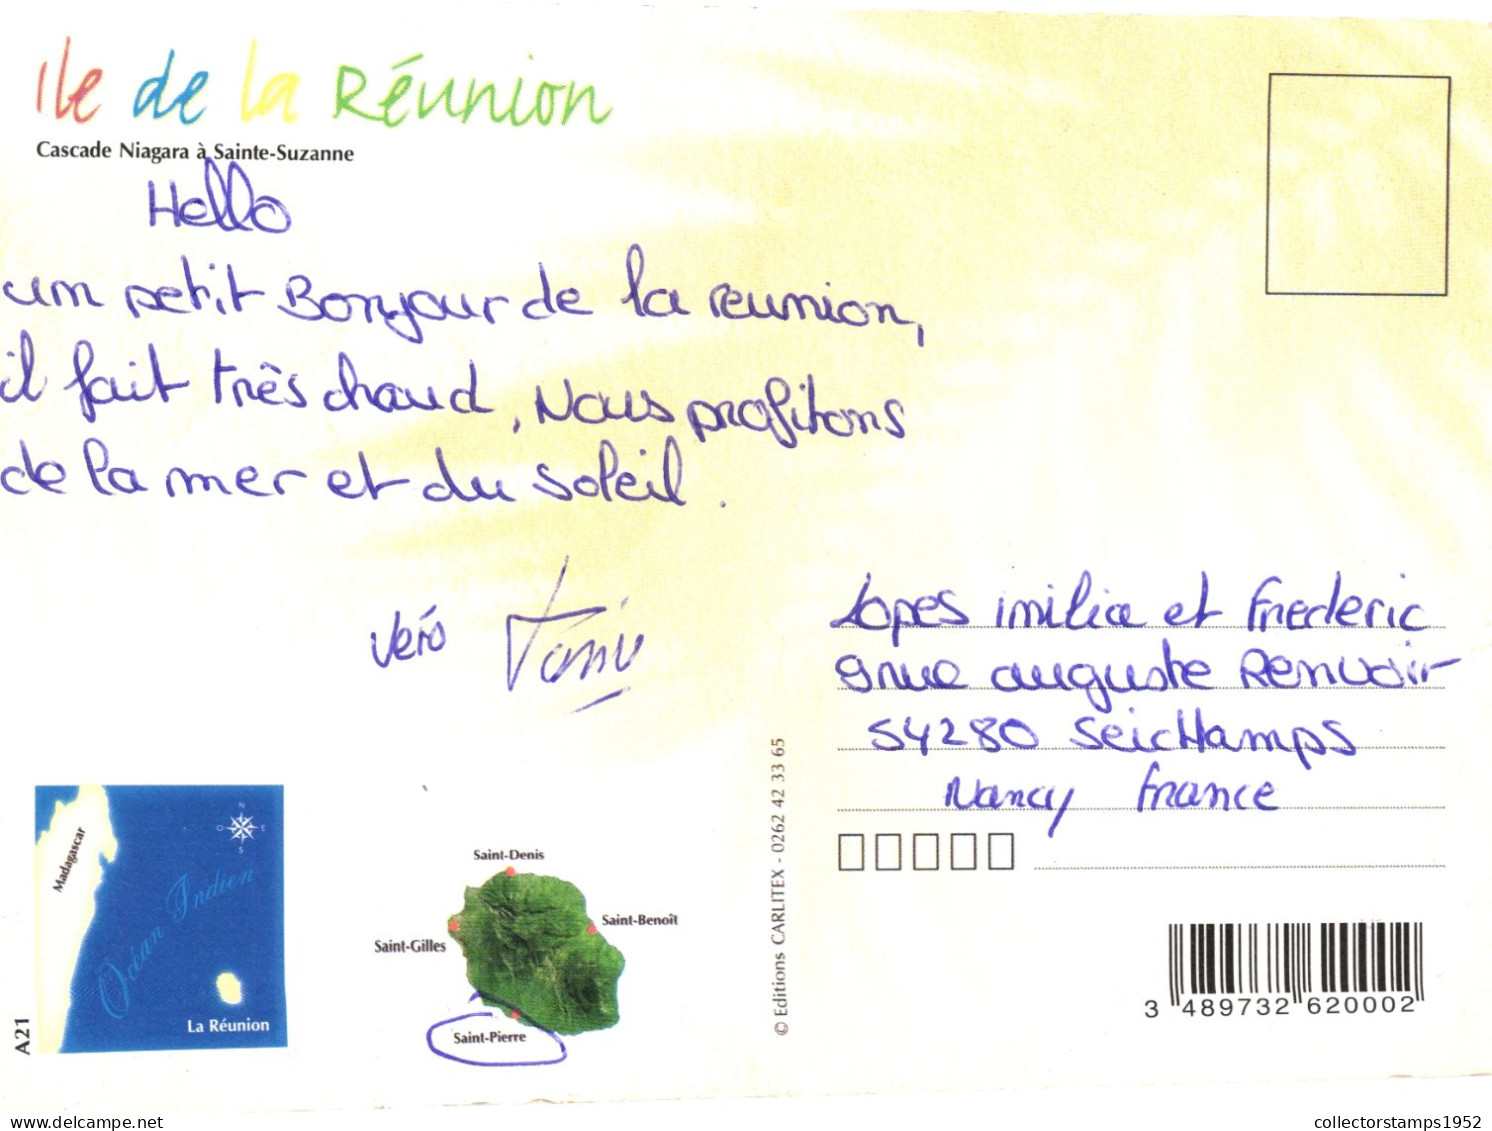 Ile de la Réunion
Cascade Niagara à Sainte-Suzanne
Hello
um petit Bonjour de la reunion,
il fait très chaud, Nous profitons
de la mer et du soleil.
Véro
Lopes imilia et Frederic
9 rue auguste Renvoir
54280 SeicHamps
Nancy France
© Editions CARLITEX - 0262 42 33 65
A21
Madagascar
N
O E
S
Océan Indien
La Réunion
Saint-Denis
Saint-Benoît
Saint-Gilles
Saint-Pierre
3 489732 620002
collectorstamps1952